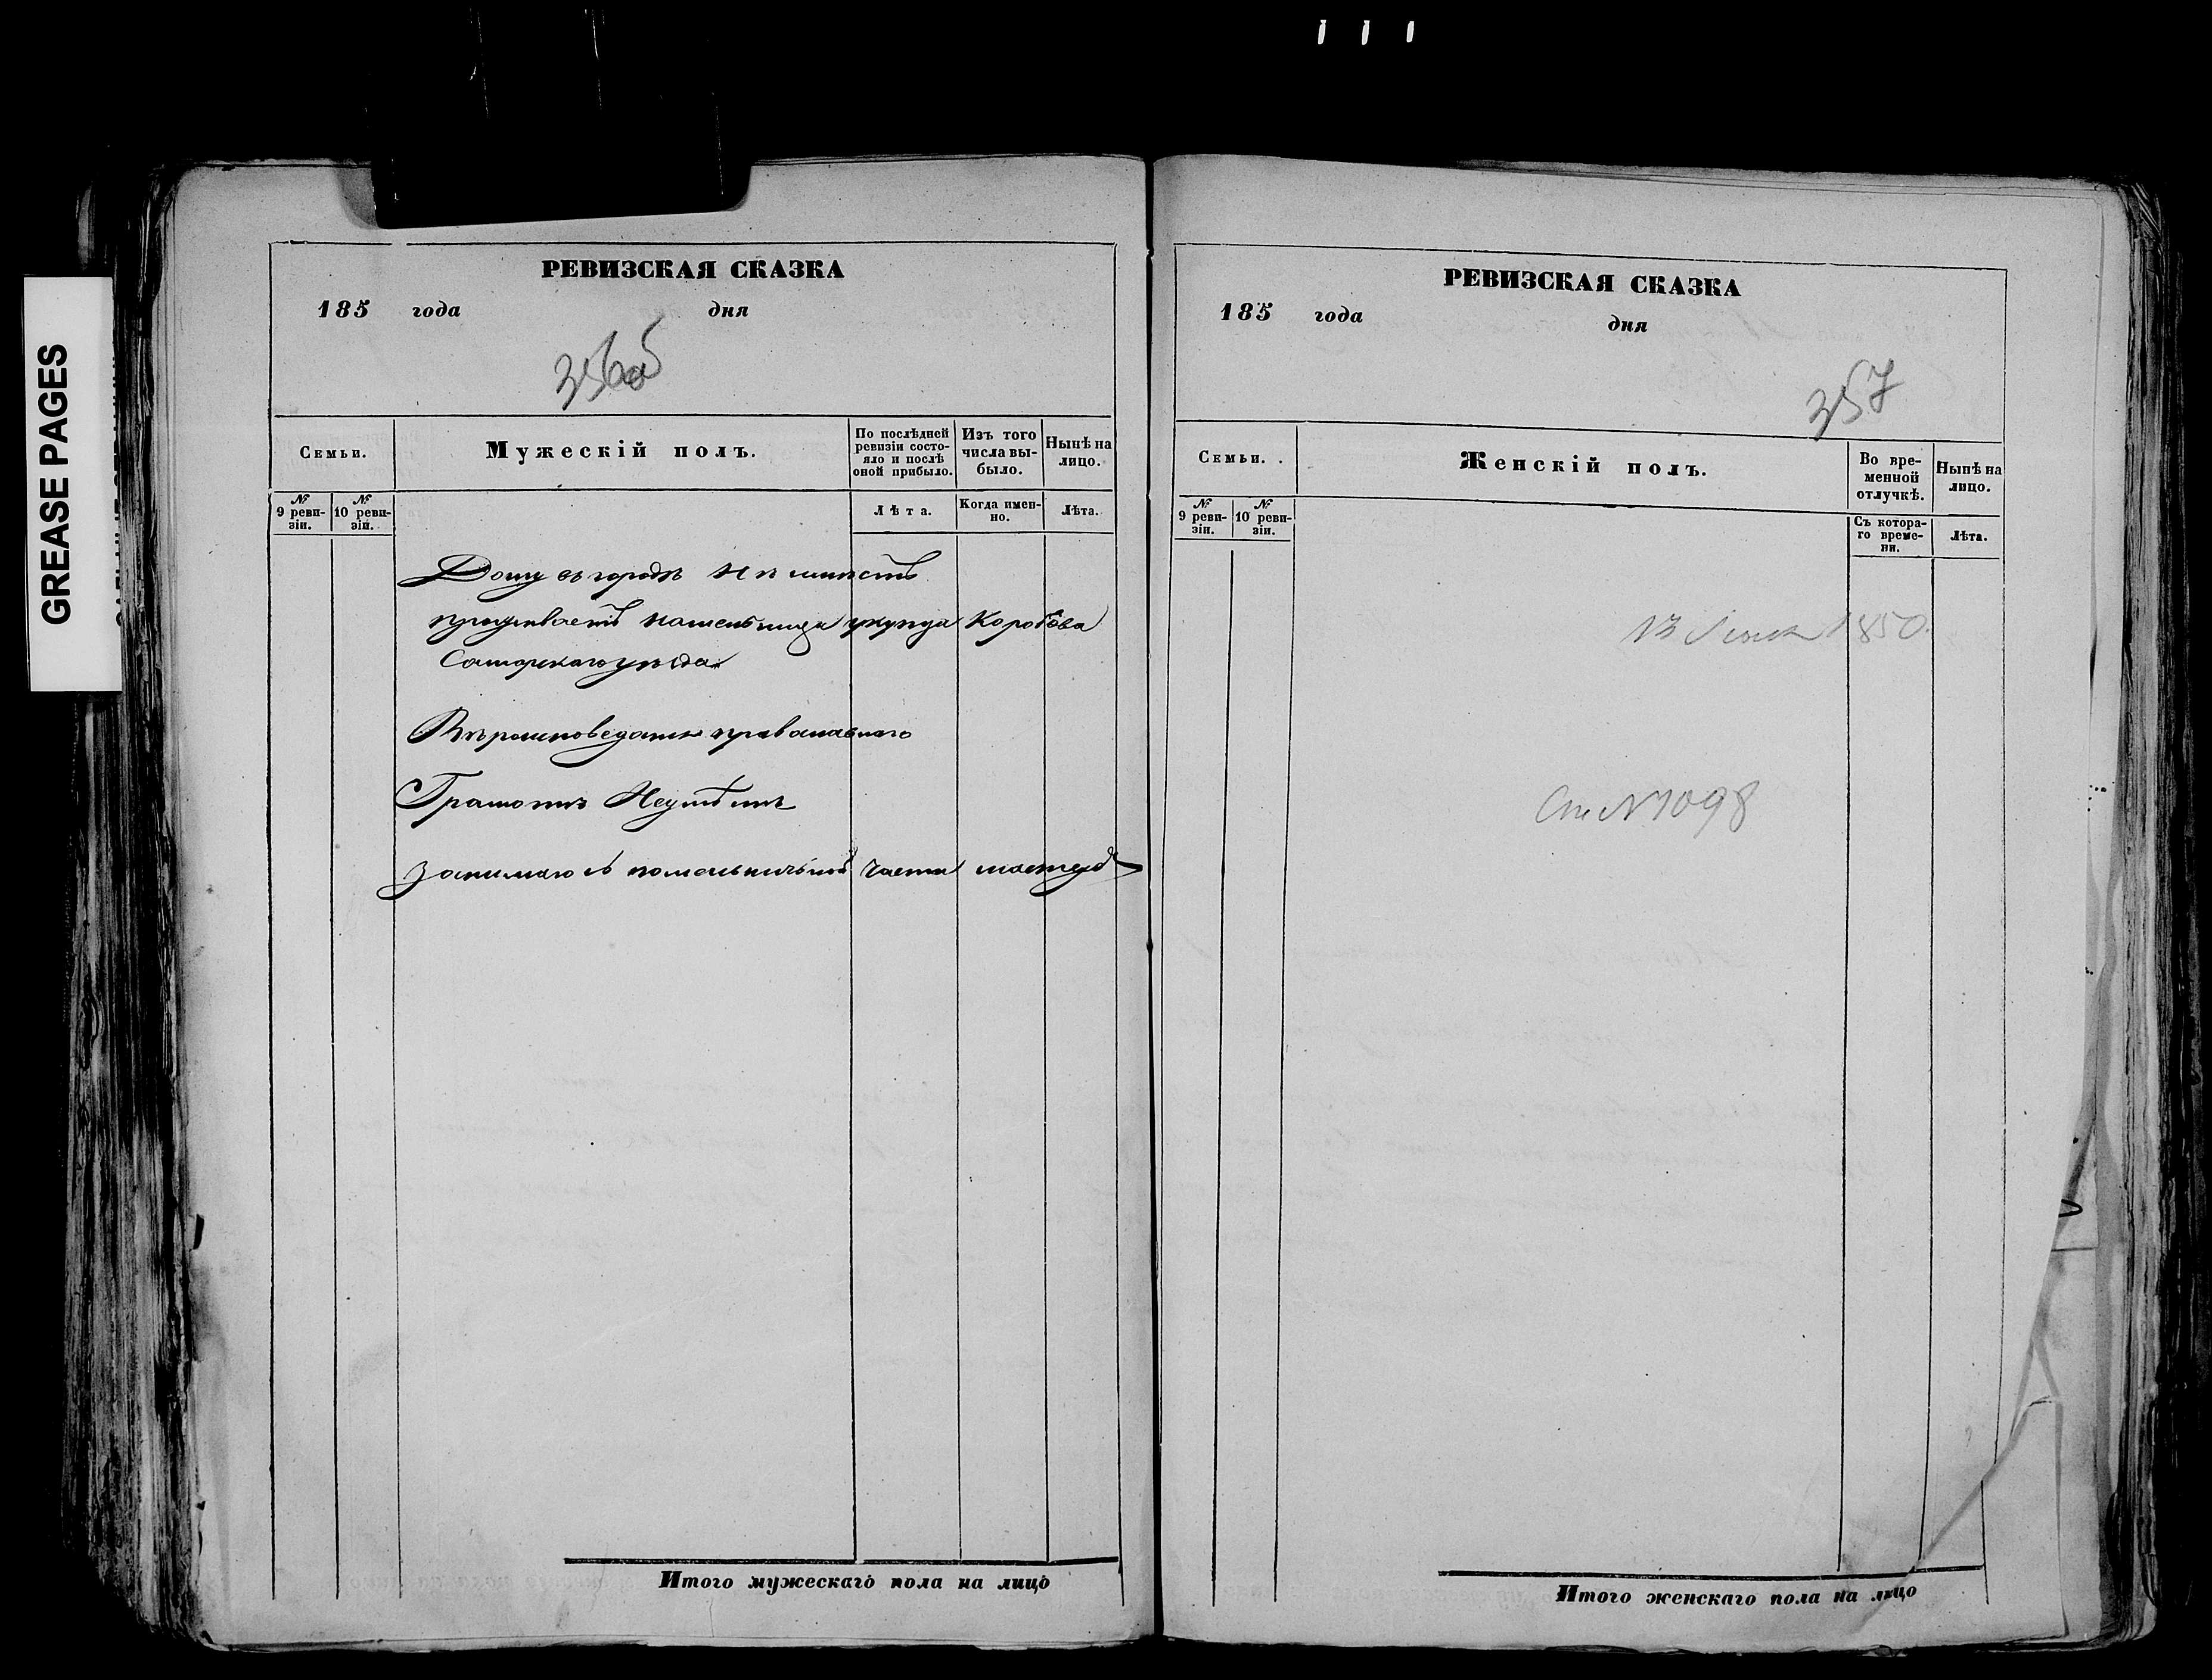 GREASE PAGES
РЕВИЗСКАЯ СКАЗКА
185 года дня
356об
Семьи.
Мужескій полъ.
По послѣдней ревизіи состояло и послѣ оной прибыло.
Изъ того числа выбыло.
Нынѣ на лицо.
№ 9 ревизіи.
№ 10 ревизіи.
Лѣта.
Когда именно.
Лѣта.
Дому въ городѣ не имѣетъ
проживаетъ на мельнице купца Коробова
Самарскаго уѣзда
Вѣроисповеданія православнаго
Грамотѣ Неумѣетъ
занимаюсь по мельничьной части
Итого мужескаго пола на лицо
РЕВИЗСКАЯ СКАЗКА
185 года дня
357
Семьи.
Женскій полъ.
Во временной отлучкѣ.
Нынѣ на лицо.
№ 9 ревизіи.
№ 10 ревизіи.
Съ котораго времени.
Лѣта.
13 1850.
№ 1098
Итого женскаго пола на лицо